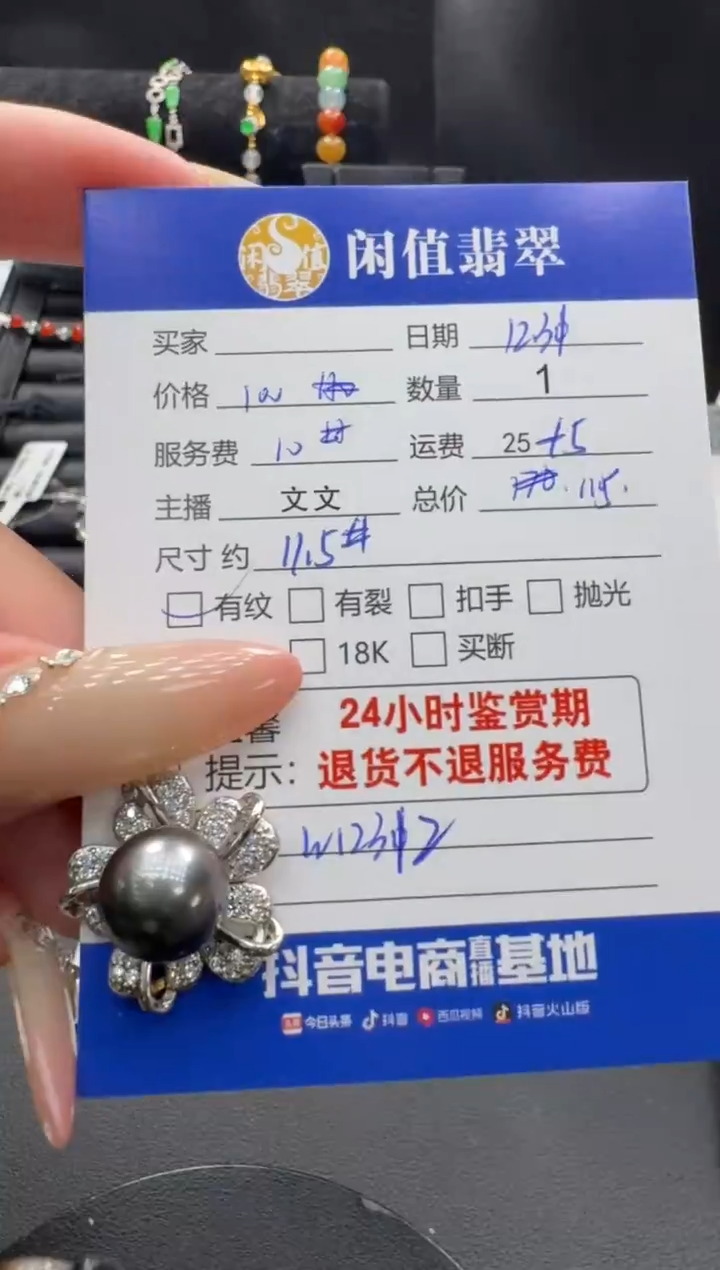 闲值翡翠
闲值翡翠
买家 日期
价格 100 数量 1
服务费 10 运费 25 +5
主播 文文 总价 115.
尺寸 约 11.5
有纹 有裂 扣手 抛光
18K 买断
馨 24小时鉴赏期
提示: 退货不退服务费
抖音电商直播基地
今日头条 抖音 西瓜视频 抖音火山版